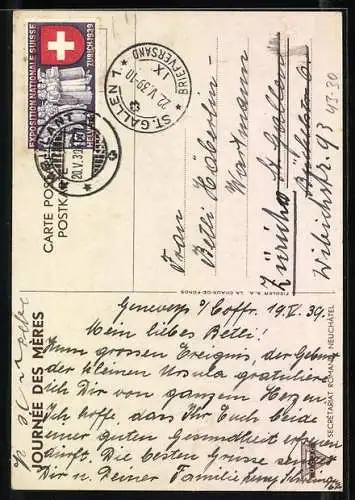 EXPOSITION NATIONALE SUISSE
ZURICH 1939
HELVETIA
ST. GALLEN 1
22.V.39.-10
IX
* BRIEFVERSAND *
20.V.39
CARTE POSTALE
POSTKARTE
Frau
Betli Häberlin-
Wartmann
St. Gallen
Zürich 6
Wibichstr. 93
43-30
FIEDLER S.A. LA CHAUX-DE-FONDS
JOURNÉE DES MÈRES
SECRÉTARIAT ROMAND NEUCHÂTEL
Geneveys s/Coffr. 19.V.39.
Mein liebes Betli!
Zum grossen Ereignis, der Geburt
der kleinen Ursula gratuliere
ich Dir von ganzem Herzen.
Ich hoffe, dass Ihr Euch beide
einer guten Gesundheit erfreuen
dürft. Die besten Grüsse sendet
Dir u. Deiner Familie